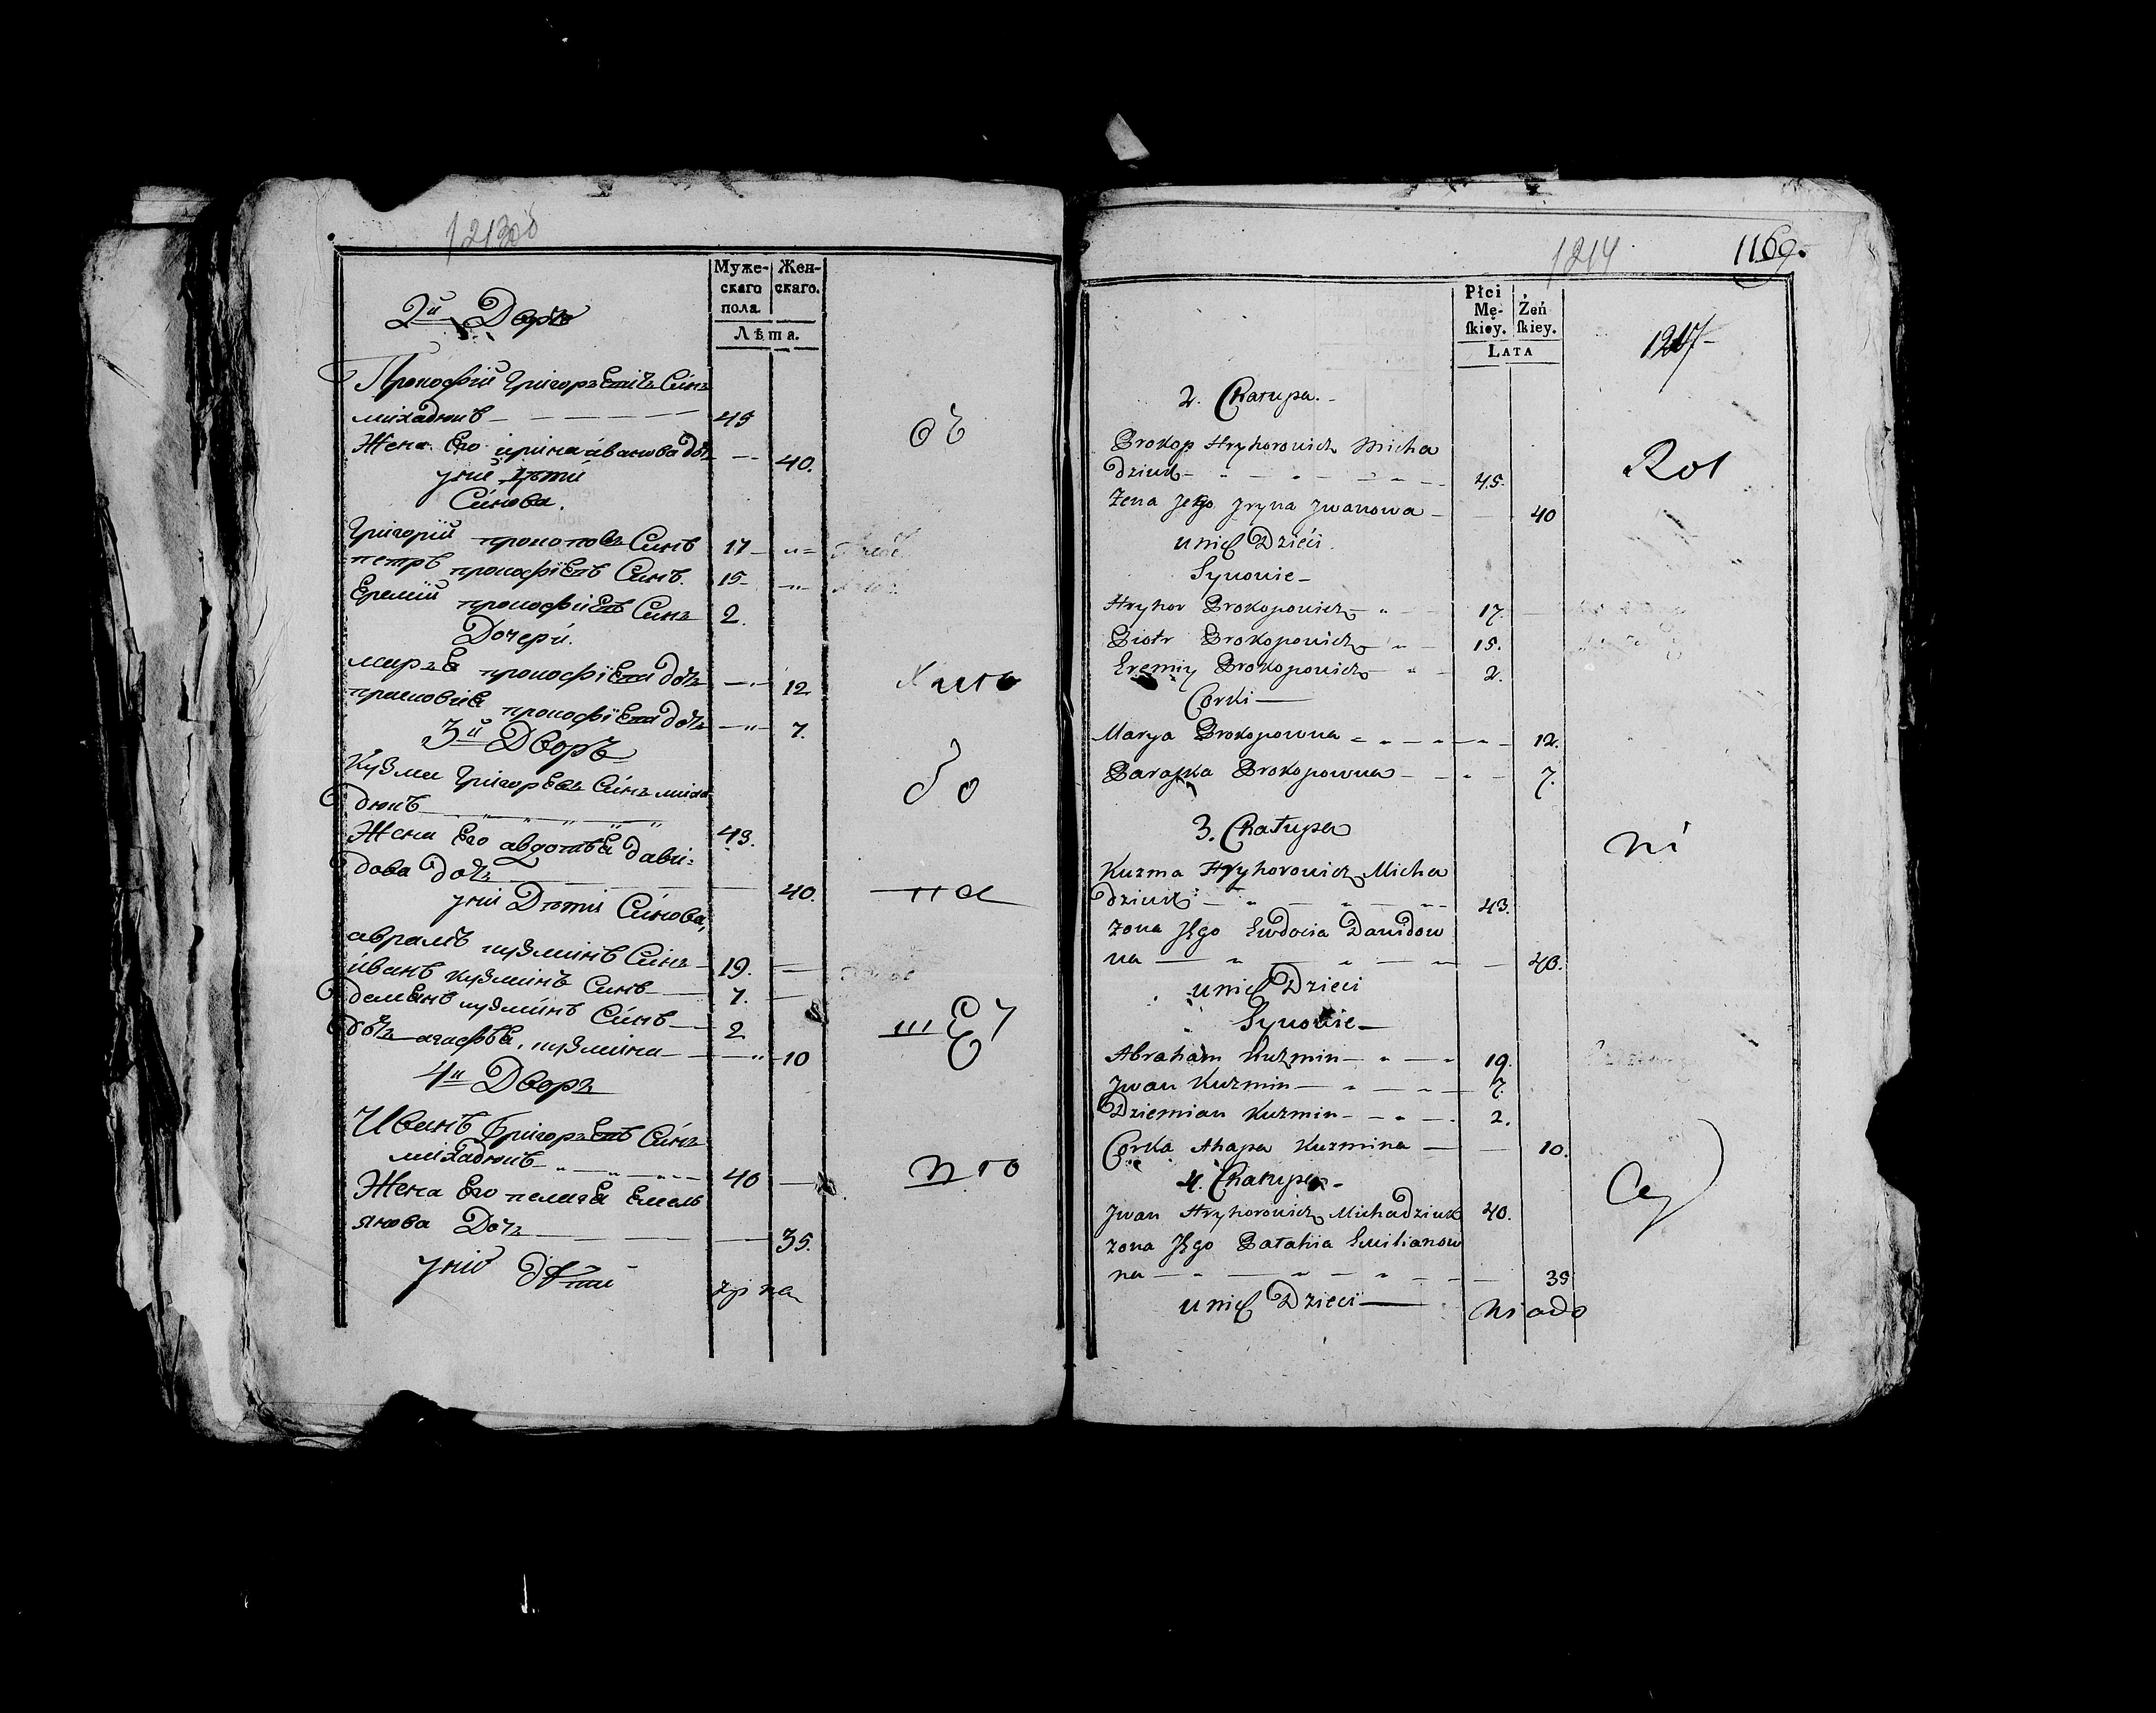 1213об
Муже-
скаго
пола.
Жен-
скаго.
Лѣта.
2й Дворъ
Прокофий Григорьевъ Синъ
михадюкъ 45
Жена Его ирина иванова дочь 40.
у них дѣти
Синова.
Григорий прокоповъ Синъ 17
петръ прокофіевъ Синъ. 15
Еремий прокофіевъ Синъ 2.
Дочери.
марья прокофіева дочь 12
прасковія прокофіева дочь 7.
3й Дворъ
Кузма Григорьевъ Синъ миха
дюкъ 43.
Жена Его авдотья дави-
дова дочь 40.
у них Дѣти Синова,
аврамъ кузминъ Синъ 19.
иванъ кузминъ Синъ 7.
демьянъ кузминъ Синъ 2
дочь агафья, кузмина 10
4й Дворъ
Иванъ Григорьевъ Синъ
михадюкъ 40
Жена Его пелагея Емель
янова Дочь 35.
у них дѣтей
объ
до
на
1214
1169.
Płci
Mę-
ſkiey.
Żeń
ſkiey.
LATA
1217
2. Chałupa.
Prokop Hryhorowicz Micha
dziuk 45.
Żena Jego Jryna Jwanowa 40
u nich Dzieci.
Synowie
Hryhor Prokopowicz 17.
Piotr Prokopowicz 15.
Eremiy Prokopowicz 2.
Corki
Marya Prokopowna 12.
Paraska Prokopowna 7.
3. Chałupa
Kuzma Hryhorowicz Micha
dziuk 43.
żona Jego Ewdocia Dawidow
na 40.
u nich Dzieci
Synowie
Abraham Kuzmin 19.
Jwan Kuzmin 7.
Dziemian Kuzmin 2.
Corka Ahapa Kuzmina 10.
4. Chałupa
Jwan Hryhorowicz Michadziuk 40.
żona Jego Pałahia Emilianow
na 35
u nich Dzieci
Ros
ni